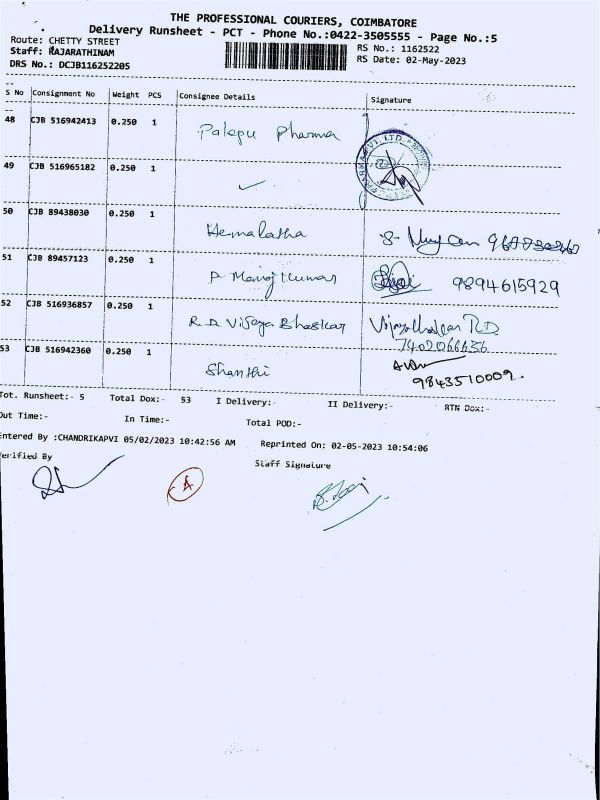 THE PROFESSIONAL COURIERS, COIMBATORE
Delivery Runsheet - PCT - Phone No.:0422-3505555 - Page No.:5
Route: CHETTY STREET
RS No.: 1162522
Staff: RAJARATHINAM
RS Date: 02-May-2023
DRS No.: DCJB116252205
S No Consignment No Weight PCS Consignee Details Signature
48 CJB 516942413 0.250 1 Palepu Pharma
49 CJB 516965182 0.250 1 ✓
50 CJB 89438030 0.250 1 Hemalatha
51 CJB 89457123 0.250 1 P Manoj Kumar 9894615929
52 CJB 516936857 0.250 1 R.D Vijaya Bhaskar
7402066656
53 CJB 516942360 0.250 1 Shanthi
9843510009.
Tot. Runsheet:- 5 Total Dox:- 53 I Delivery:- II Delivery:- RTN Dox:-
Out Time:- In Time:- Total POD:-
Entered By :CHANDRIKAPVI 05/02/2023 10:42:56 AM Reprinted On: 02-05-2023 10:54:06
erified By Staff Signature
A